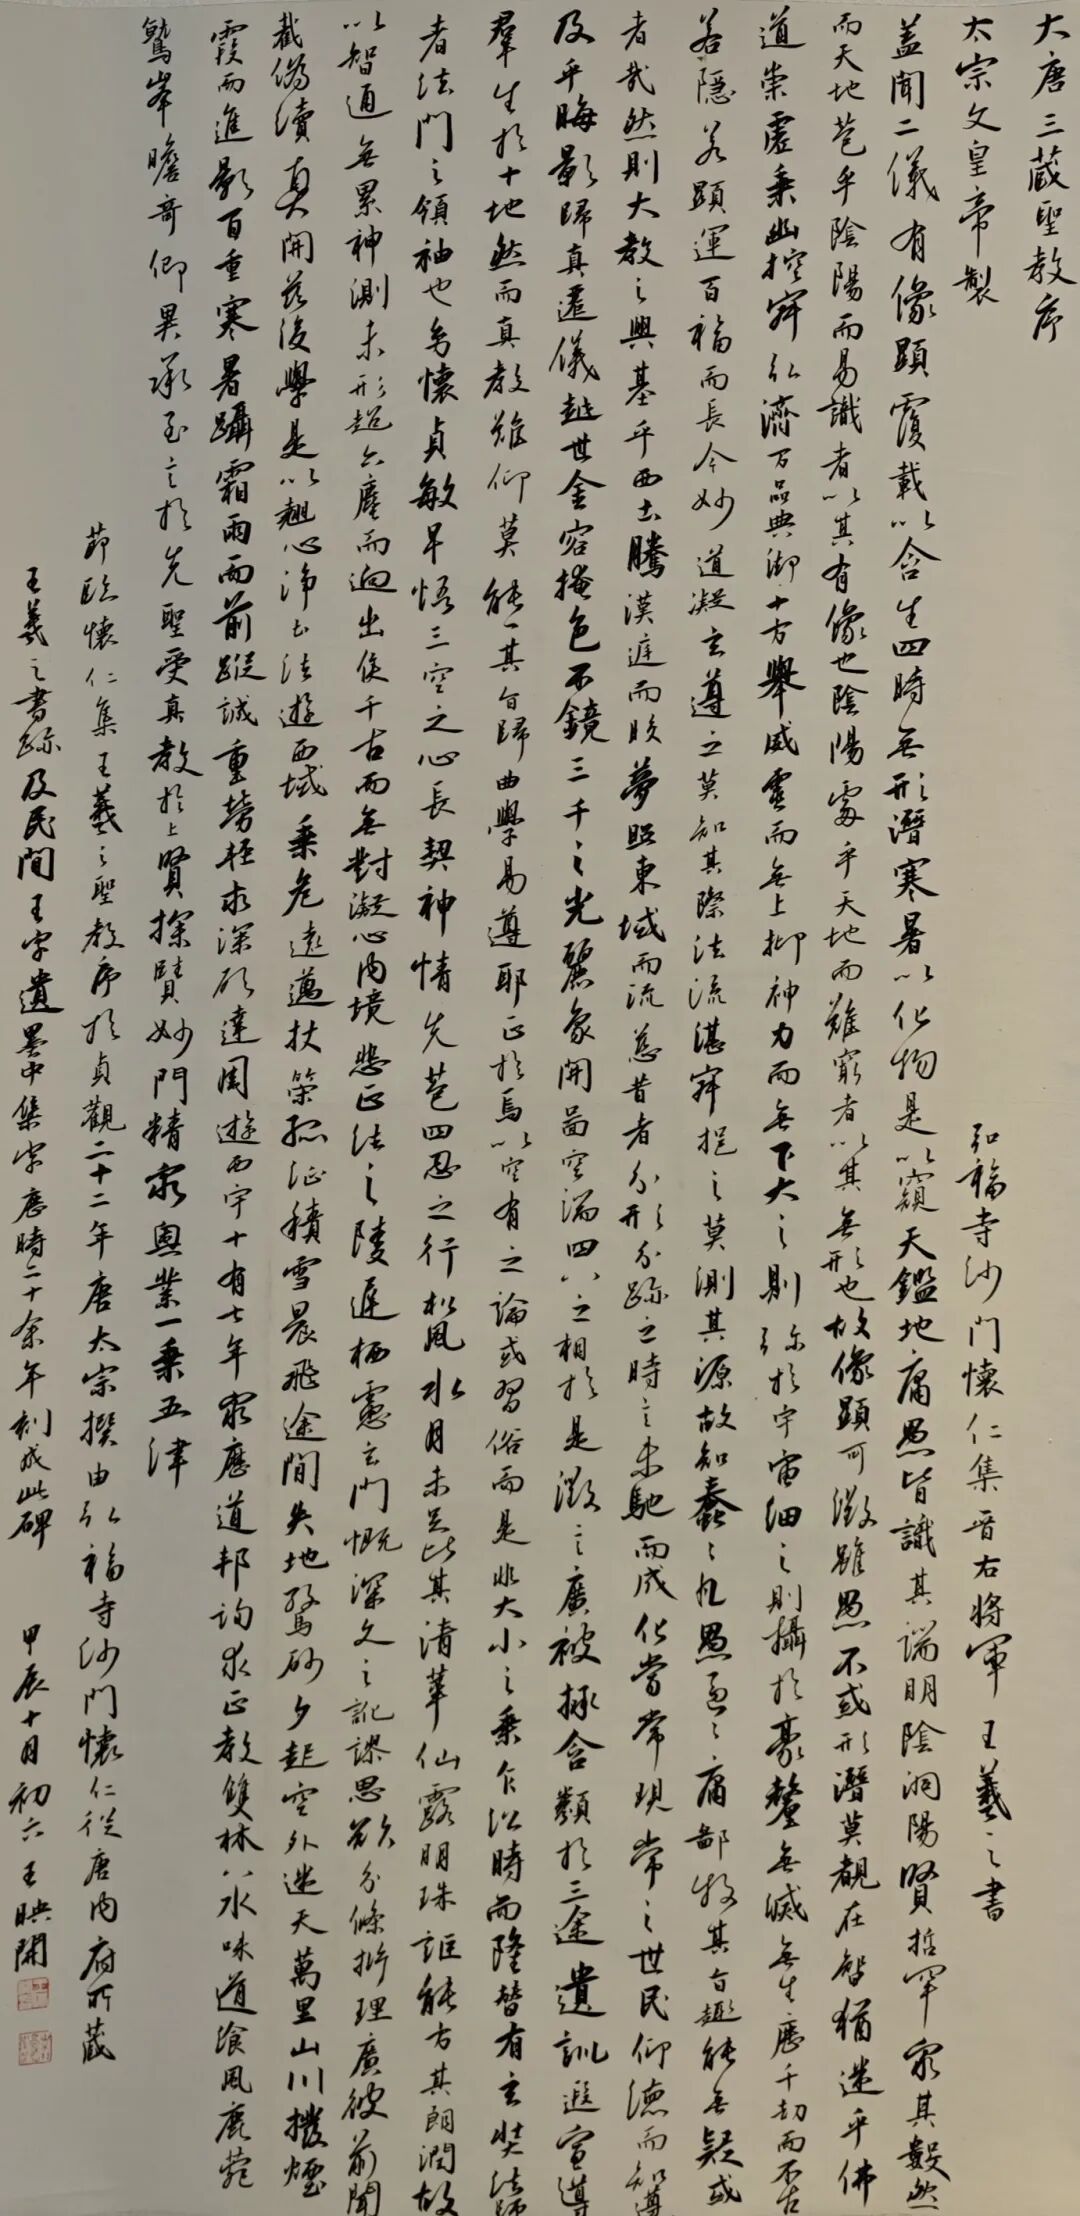 大唐三藏聖教序
太宗文皇帝製
弘福寺沙門懷仁集晉右將軍王羲之書
蓋聞二儀有像顯覆載以含生四時無形潛寒暑以化物是以窺天鑑地庸愚皆識其端明陰洞陽賢哲罕窮其數然
而天地苞乎陰陽而易識者以其有像也陰陽處乎天地而難窮者以其無形也故像顯可徵雖愚不惑形潛莫覩在智猶迷乎佛
道崇虛乘幽控寂弘濟万品典御十方舉威靈而無上抑神力而無下大之則彌於宇宙細之則攝於豪釐無滅無生歷千劫而不古
若隱若顯運百福而長今妙道凝玄遵之莫知其際法流湛寂挹之莫測其源故知蠢〻凡愚區〻庸鄙投其旨趣能無疑或
者哉然則大教之興基乎西土騰漢庭而皎夢照東域而流慈昔者分形分跡之時言未馳而成化當常現常之世民仰德而知遵
及乎晦影歸真遷儀越世金容掩色不鏡三千之光麗象開圖空端四八之相於是微言廣被拯含類於三途遺訓遐宣導
羣生於十地然而真教難仰莫能一其旨歸曲學易遵耶正於焉以空有之論或習俗而是非大小之乘乍沿時而隆替有玄奘法師
者法門之領袖也幼懷貞敏早悟三空之心長契神情先苞四忍之行松風水月未足比其清華仙露明珠詎能方其朗潤故
以智通無累神測未形超六塵而迥出隻千古而無對凝心內境悲正法之陵遲栖慮玄門慨深文之訛謬思欲分條析理廣彼前聞
截偽續真開茲後學是以翹心淨土法遊西域乘危遠邁杖策孤征積雪晨飛途間失地驚砂夕起空外迷天萬里山川撥煙
霞而進影百重寒暑躡霜雨而前蹤誠重勞輕求深願達周遊西宇十有七年窮歷道邦詢求正教雙林八水味道飡風鹿菀
鷲峯瞻奇仰異承至言於先聖受真教於上賢探賾妙門精窮奧業一乘五律
節臨懷仁集王羲之聖教序於貞觀二十二年唐太宗撰由弘福寺沙門懷仁從唐內府所藏
王羲之書跡及民間王字遺墨中集字歷時二十余年刻成此碑　甲辰十月初六王映開